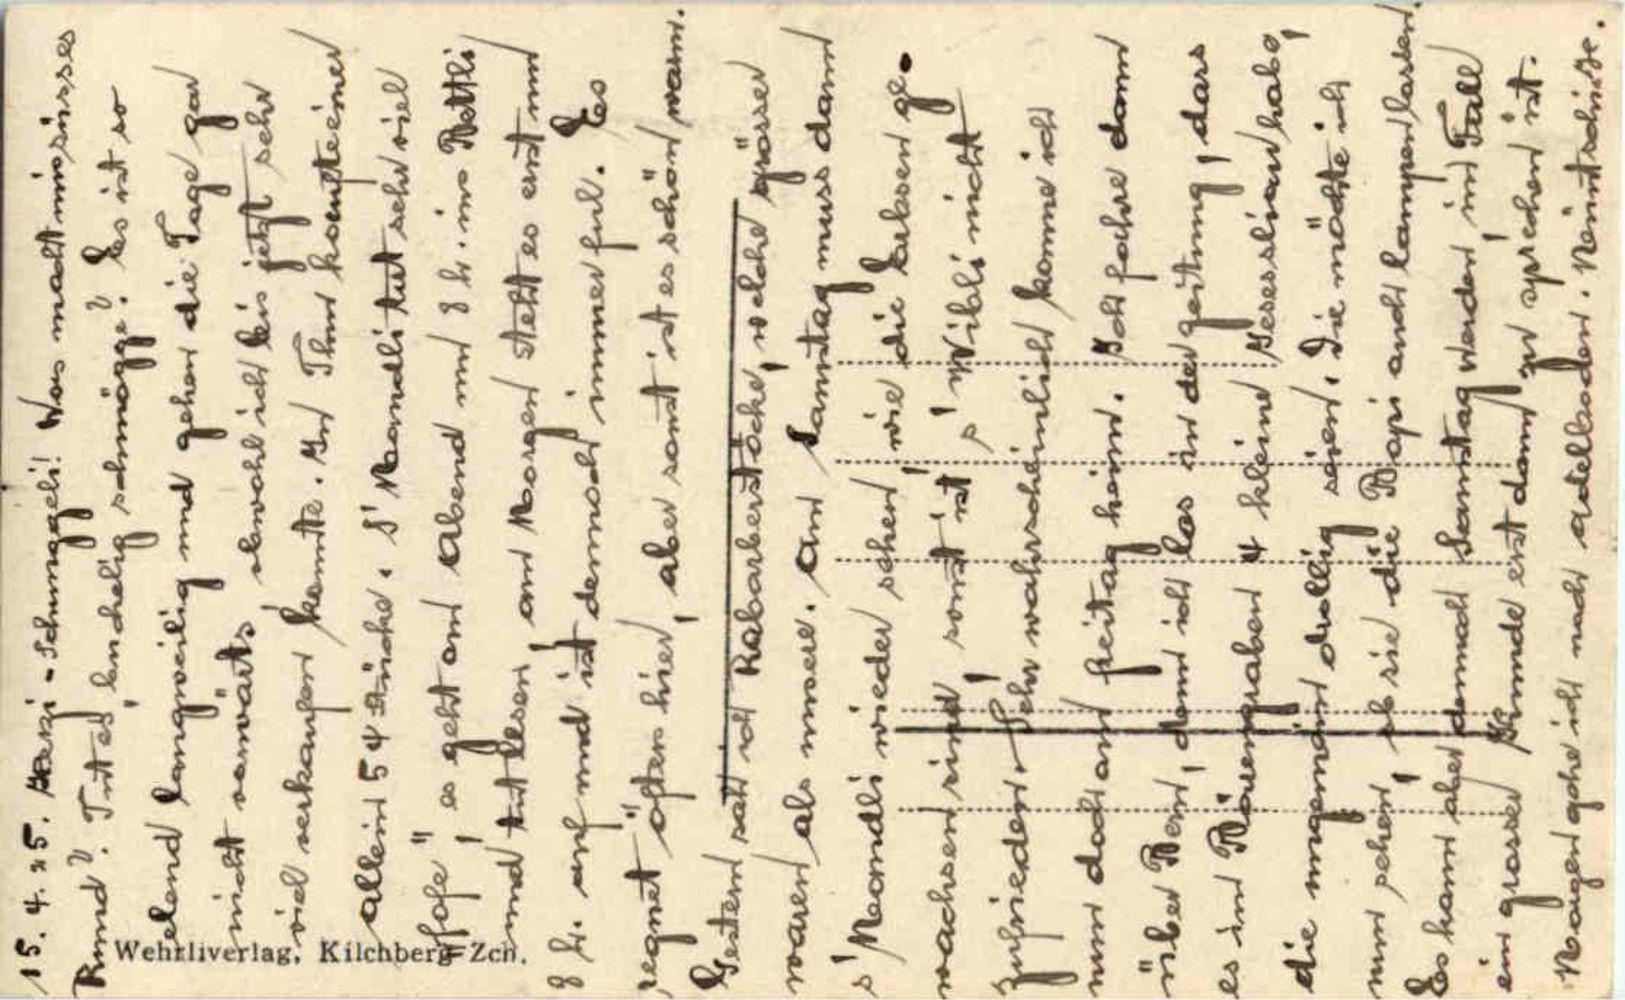 15. 4. 25. Härzi-Schmuggeli! Was macht mis süsses
Rund? Tuet es, landelig schmögge? Es ist so
elend langweilig und gehen die Tage gar
nicht vorwärts, obwohl ich bis jetzt sehr
viel verkaufen konnte. In Thun heute einer
allein 54 Stücke. S' Mandli tut sehr viel
"fofe", es geht am Abend um 8 h. ins Bettli
und tut lesen, am Morgen steht es erst um
8 h. auf und ist dennoch immer ful. Es
regnet öfters hier, aber sonst ist es schön warm.
Gestern sah ich Rabarberstöcke, welche grösser
waren als unsere. Am Samstag muss dann
s' Mandli wieder sehen, wie die Erbsen ge-
wachsen sind, sonst ist s' Wibli nicht
zufrieden. Sehr wahrscheinlich komme ich
nun doch am Freitag heim. Ich fahre dann
über Bern, denn ich las in der Zeitung, dass
es im Bärengraben 4 kleine
die ungemein drollig seien. Die möchte ich
nun sehen, ob sie die Bapi auch lampen lassen.
Es kann aber dennoch Samstag werden, im Fall
ein grosser Kunde erst dann zu sprechen ist.
Morgen gehe ich nach Adelboden.
Wehrliverlag, Kilchberg-Zch.